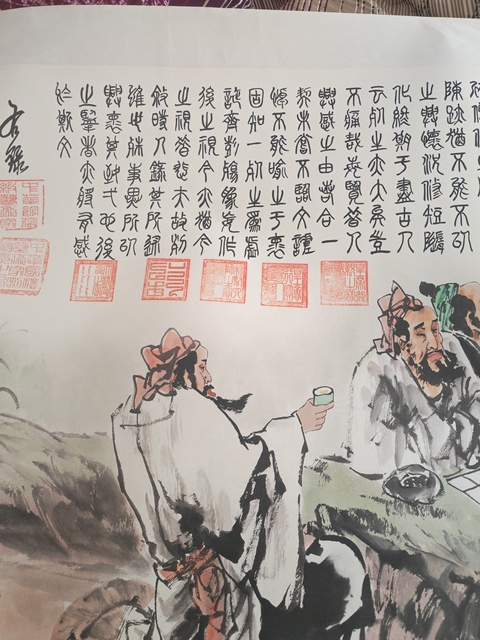 陳跡猶不能不以
之興懷況修短隨
化終期于盡古人
云死生亦大矣豈
不痛哉每覽昔人
興感之由若合一
契未嘗不臨文嗟
悼不能喻之于懷
固知一死生為虛
誕齊彭殤為妄作
後之視今亦猶今
之視昔悲夫故列
敘時人錄其所述
雖世殊事異所以
興懷其致一也後
之覽者亦將有感
於斯文